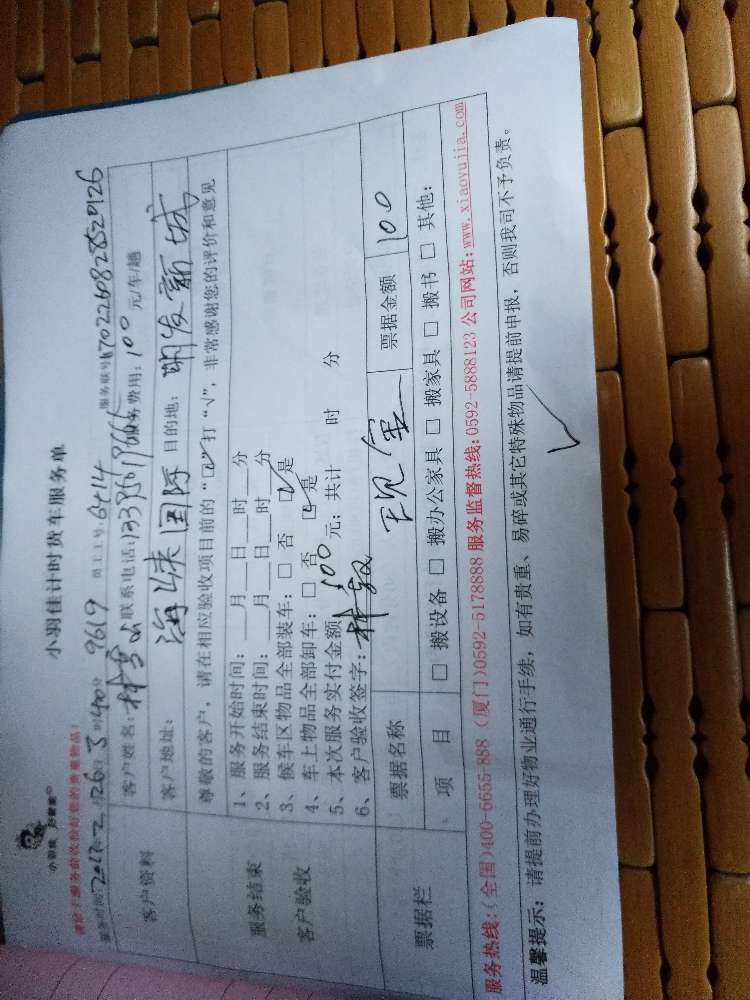 小羽佳 好家政
小羽佳计时货车服务单
服务时间:2017.2月26日3时40分 9619 员工工号:6414 服务联号:1702260828529126
客户资料 客户姓名: 联系电话:13396019666 服务费用:100 元/车/趟
客户地址: 海峡国际 目的地: 明发新城
尊敬的客户,请在相应验收项目前的“☑”打“√”,非常感谢您的评价和意见
服务结束
客户验收
1、服务开始时间:___月___日___时___分
2、服务结束时间:___月___日___时___分
3、候车区物品全部装车:□ 否 ☑ 是
4、车上物品全部卸车:□ 否 ☑ 是
5、本次服务实付金额 100 元;共计 时 分
6、客户验收签字:
票据栏 票据名称 现金 票据金额 100
项 目 □ 搬设备 □ 搬办公家具 □ 搬家具 □ 搬书 □ 其他:
服务热线:(全国)400-6655-888 (厦门)0592-5178888 服务监督热线:0592-5888123 公司网站:www.xiaoyujia.com
温馨提示:请提前办理好物业通行手续,如有贵重、易碎或其它特殊物品请提前申报,否则我司不予负责。